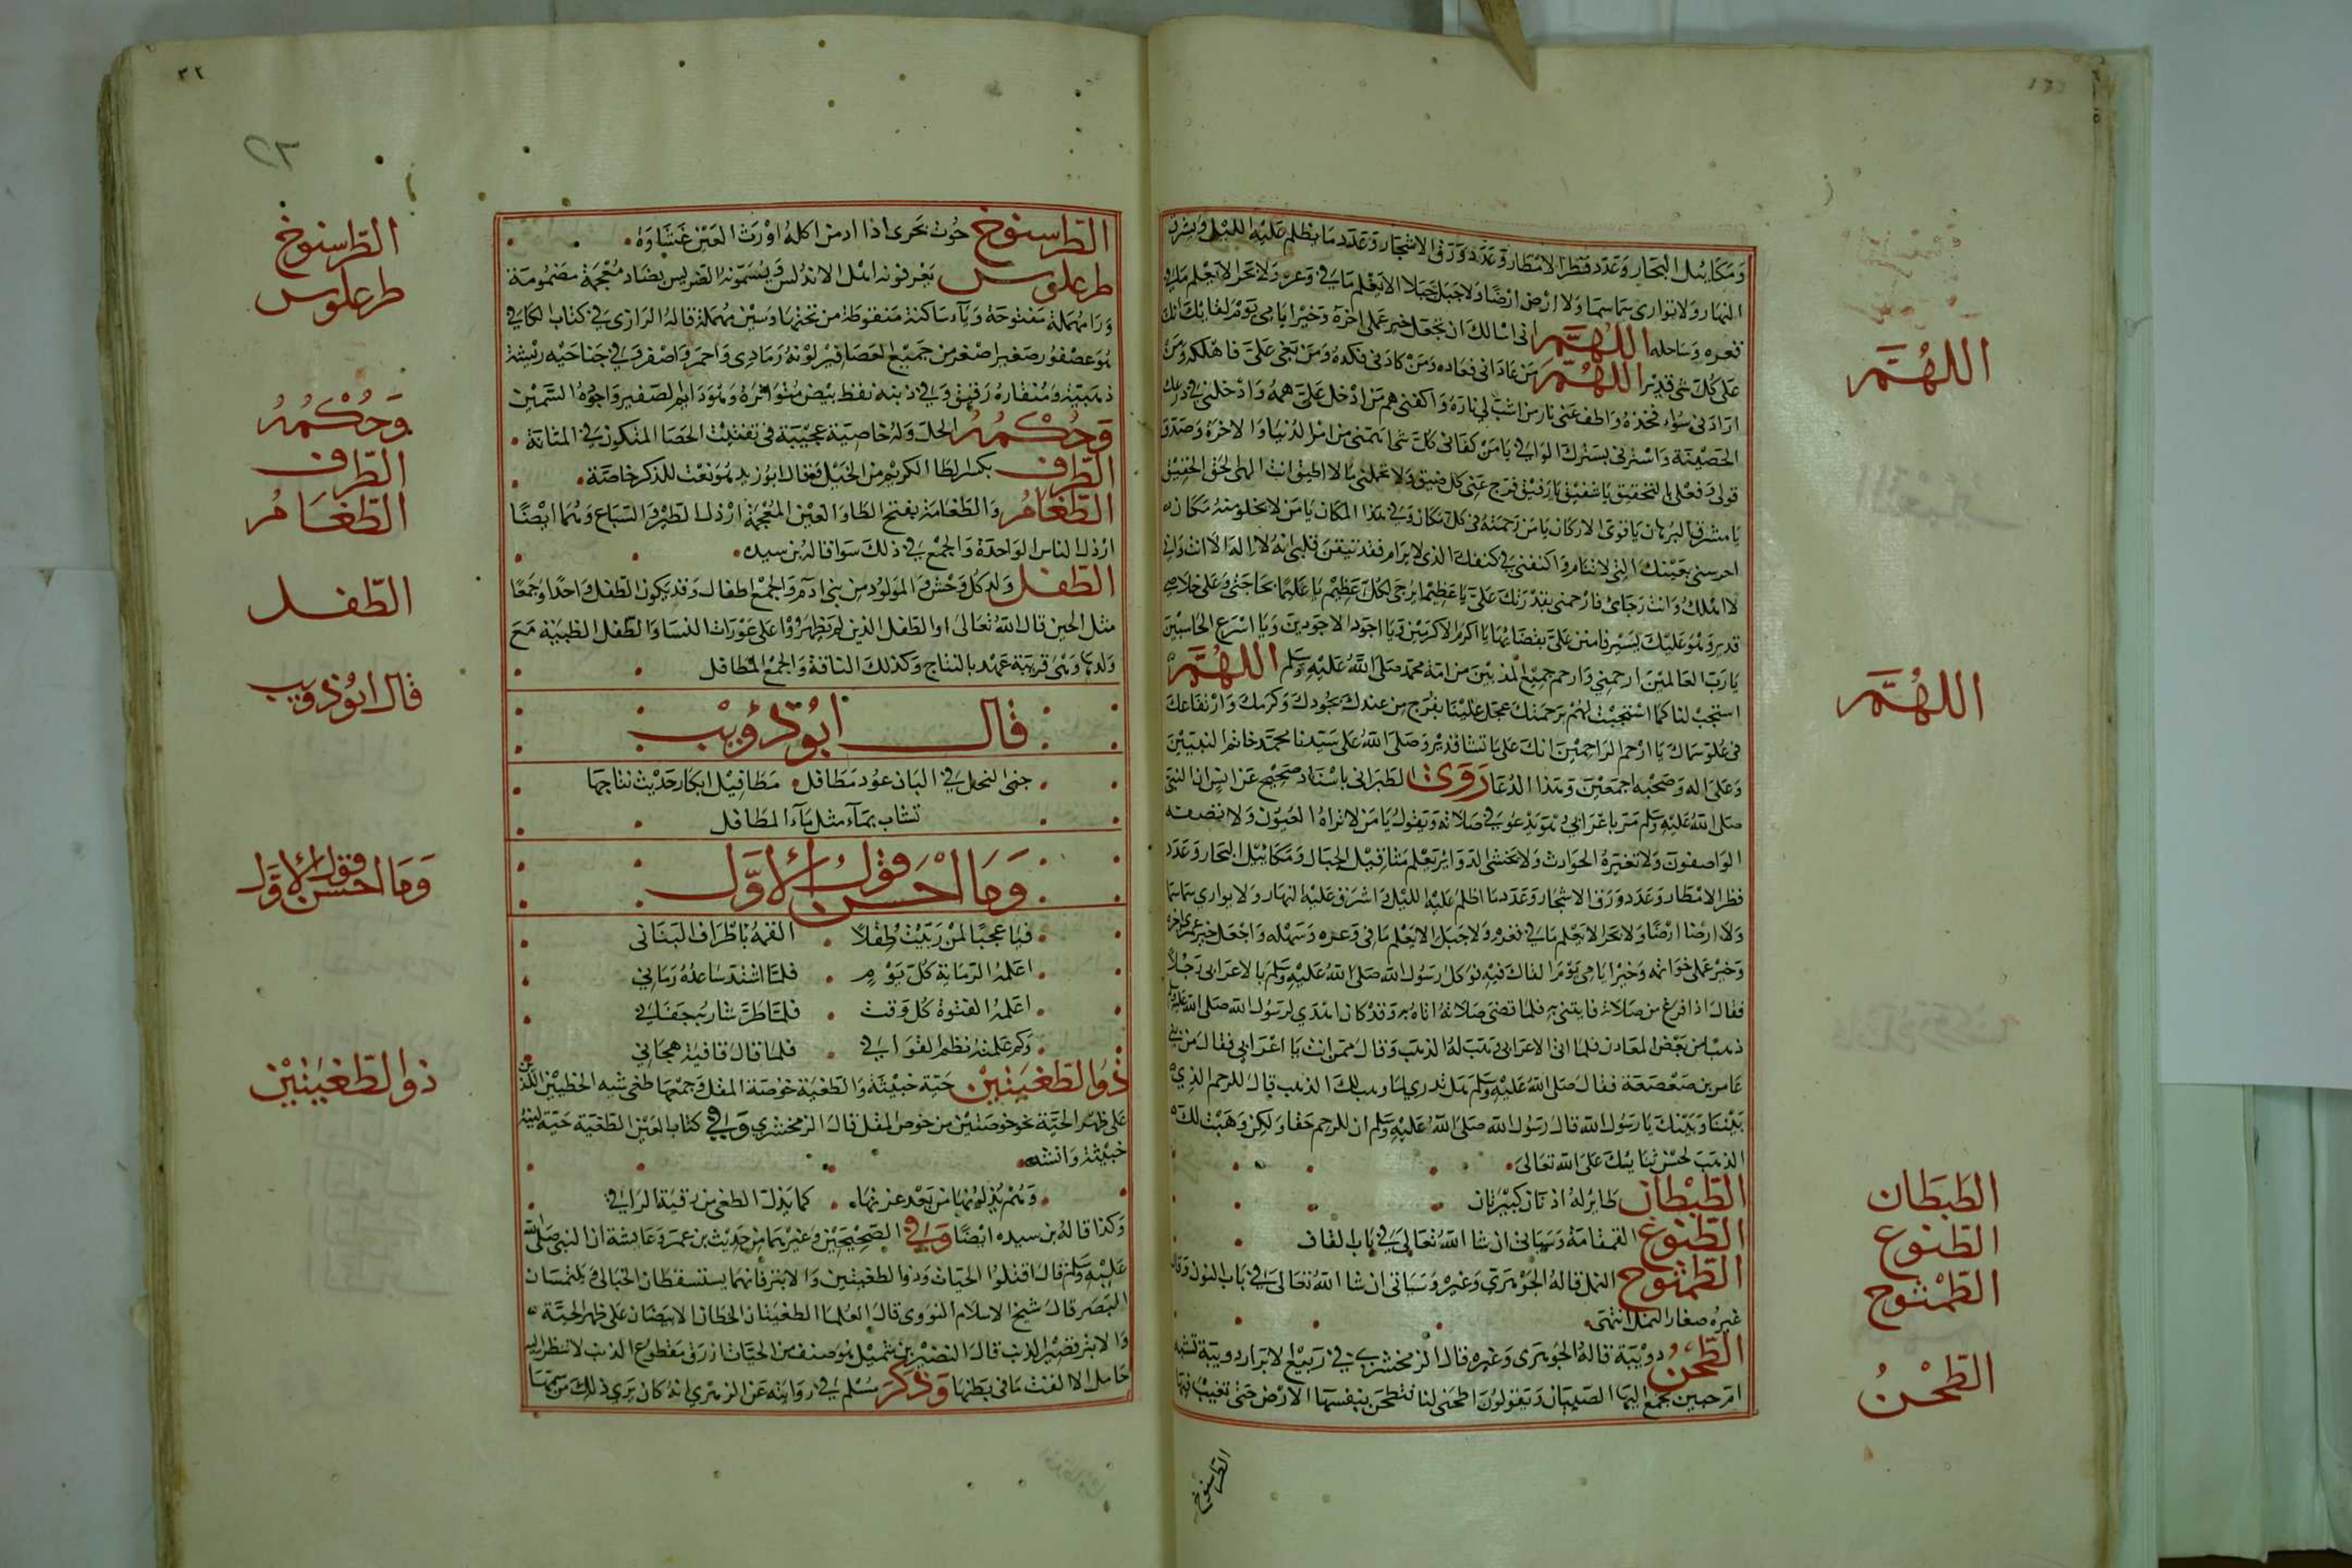 ومكاييل البحار وعدد قطر الامطار وعدد ورق الاشجار وعدد ما يظلم عليه الليل ويشرق
النهار ولا توارى سما سما ولا ارض ارضا ولا جبل جبلا الا يعلم ما في وعره ولا بحر الا يعلم ما في
قعره وساحله اللهم انى اسالك ان تجعل خير عملى اخره وخير ايامى يوم لقايك انك
على كل شى قدير اللهم من عادانى فعاده ومن كادنى فكده ومن بغى علىّ فاهلكه ومن
ارادنى بسوء فخذه واطف عنى نار من اشب لي ناره واكفنى هم من ادخل علىّ همه وادخلنى في درعك
الحصينة واسترنى بسترك الوافي يا من كفانى كل شى اكفنى ما اهمنى من امر الدنيا والاخرة وصدق
قولى وفعلى بالتحقيق يا شفيق يا رفيق فرج عنى كل ضيق ولا تحملنى ما لا اطيق انت الهى الحق الحقيق
يا مشرق البرهان يا قوى الاركان يا من رحمته في كل مكان وفي هذا المكان يا من لا يخلو منه مكان
احرسنى بعينك التى لا تنام واكنفنى في كنفك الذى لا يرام فقد تيقن قلبى انه لا اله الا انت وانى
لا اهلك وانت رجائ فارحمنى بقدرتك علىّ يا عظيما يرجى لكل عظيم يا عليما بحاجتى وعلى خلاصى
قدير وهو عليك يسير فامنن علىّ بقضائها يا اكرم الاكرمين ويا اجود الاجودين ويا اسرع الحاسبين
يا رب العالمين ارحمني وارحم جميع المذنبين من امة محمد صلى الله عليه وسلم اللهم
استجب لنا كما استجبت لهم برحمتك عجل علينا بفرج من عندك بجودك وكرمك وارتفاعك
فى علو سماك يا ارحم الراحمين انك على ما تشا قدير وصلى الله على سيدنا محمد خاتم النبيين
وعلى اله وصحبه اجمعين وهذا الدعا روى الطبرانى باسناد صحيح عن انس ان النبى
صلى الله عليه وسلم مر باعرابي وهو يدعو في صلاته ويقول يا من لا تراه العيون ولا تصفه
الواصفون ولا تغيره الحوادث ولا يخشى الدواير يعلم مثاقيل الجبال ومكاييل البحار وعدد
قطر الامطار وعدد ورق الاشجار وعدد ما اظلم عليه الليل واشرق عليه النهار ولا يواري سما سما
ولا ارضا ارضا ولا بحر الا يعلم ما في قعره ولا جبل الا يعلم ما في وعره وسهله واجعل خير عمرى اخره
وخير عملى خواتمه وخير ايامى يوم القاك فيه فوكل رسول الله صلى الله عليه وسلم بالاعرابى رجلا
فقال اذا فرغ من صلاته فايتنى به فلما قضى صلاته اتاه به وقد كان اهدي لرسول الله صلى الله عليه وسلم
ذهب من بعض المعادن فلما اتى الاعرابى وهب له الذهب وقال ممن انت يا اعرابي فقال من بني
عامر بن صعصعة فقال صلى الله عليه وسلم هل تدري لما وهبت لك الذهب قال للرحم الذي
بيننا وبينك يا رسول الله قال رسول الله صلى الله عليه وسلم ان للرحم حقا ولكن وهبت لك
الذهب لحسن ثنايك على الله تعالى
الطبطان طائر له اذنان كبيرتان
الطنوع القمقامة وسياتى ان شا الله تعالى في باب القاف
الطمثوح النمل قاله الجوهري وغيره وسياتى ان شا الله تعالى في باب النون وقال
غيره صغار النمل انتهى
الطحن دويبة قاله الجوهرى وغيره قال الزمخشرى في ربيع الابرار دويبة تشبه
ام حبين تجمع اليها الصبيان ويقولون اطحنى لنا فتطحن بنفسها الارض حتى تغيب فيها
الطرسنوخ
اللهم
اللهم
الطبطان
الطنوع
الطمثوح
الطحن
٣٢
الطرسنوخ حوت بحرى اذا ادمن اكله اورث العين غشاوة
طرعلوس يعرفونه اهل الاندلس ويسمونه الضريس بضاد معجمة مضمومة
ورا مهملة مفتوحة ويآء ساكنة منقوطة من تحتها وسين مهملة قاله الرازى في كتاب الكافي
هو عصفور صغير اصغر من جميع العصافير لونه رمادى واحمر واصفر وفي جناحيه ريشة
ذهبية ومنقاره رقيق وفي ذنبه نقط بيض متواترة وهو دايم الصفير واجوده السمين
وحكمه الحل وله خاصية عجيبة فى تفتيت الحصا المتكون في المثانة
الطرف بكسر الطا الكريم من الخيل وقال ابو زيد هو نعت للذكر خاصة
الطغام والطغامة بفتح الطا والغين المعجمة ارذل الطير والسباع وهما ايضا
ارذل الناس الواحدة والجمع في ذلك سوا قاله بن سيده
الطفل ولد كل وحش والمولود من بنى ادم والجمع اطفال وقد يكون الطفل واحدا وجمعا
مثل الجنب قال الله تعالى او الطفل الذين لم يظهروا على عورات النسا والطفل الظبية مع
ولدها وهى قريبة عهد بالنتاج وكذلك الناقة والجمع المطافل
قال ابو ذؤيب
جنى النحل في البان عود مطافل مطافيل ابكار حديث نتاجها
تشاب بمآء مثل مآء المطافل
وما احسن قول الاول
فيا عجبا لمن ربيت طفلا القمه باطراف البنانى
اعلمه الرماية كل يوم فلما اشتد ساعده رمانى
اعلمه الفتوة كل وقت فلما طر شاربه جفانى
وكم علمته نظم القوافي فلما قال قافية هجانى
ذو الطغيتين حية خبيثة والطغية خوصة المقل وجمعها طغى شبه الخطين اللذين
على ظهر الحية بخوصتين من خوص المقل قال الزمخشري وفي كتاب العين الطغية حية لينة
خبيثة وانشد
وهم يذلونها من بعد عزتها كما يذل الطغى من رقية الراقي
وكذا قاله بن سيده ايضا وفي الصحيحين وغيرهما من حديث بن عمر وعايشة ان النبى صلى الله
عليه وسلم قال اقتلوا الحيات وذو الطغيتين والابتر فانهما يستسقطان الحبالى ويلتمسان
البصر قال شيخ الاسلام النووى قال العلما الطغيتان الخطان الابيضان على ظهر الحية
والابتر قصير الذنب قال النضر بن شميل هو صنف من الحيات ازرق مقطوع الذنب لا تنظر اليه
حامل الا القت ما في بطنها وذكر مسلم في روايته عن الزهري انه كان يرى ذلك من سمها
الطرسنوخ
طرعلوس
وحكمه
الطرف
الطغام
الطفل
قال ابو ذويب
وما احسن قول الاول
ذو الطغيتين